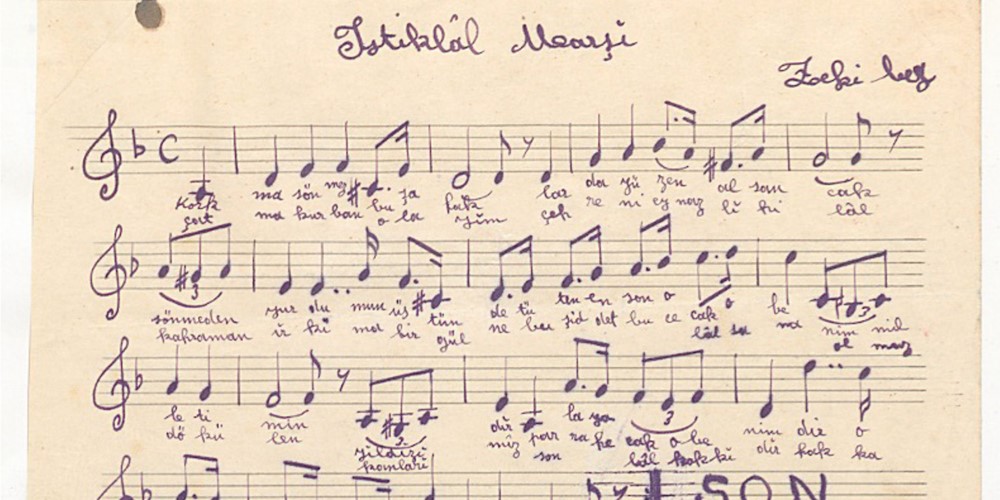 İstiklâl Marşi
Zeki bey
C
Kork ma sön mez bu şa fak lar da yü zen al san cak
çat ma kur ban o la yim çeh re ni ey naz li hi lâl
3
sönmeden yur du mun üs tün de tü ten en son o cak o be nim mil
kahraman ir ki ma bir gül ne bu şid det bu ce lâl sa na ol maz
3
le ti min yildizi dir par la ya cak o be nim dir o
dö kü len kanlari miz son ra he lâl hakki dir hak ka
3
SON